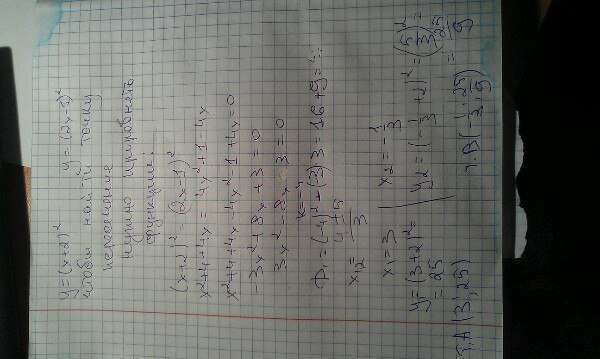 y=(x+2)² y=(2x-1)²
чтобы найти точку
пересечения
нужно приравнять
функции:
(x+2)² = (2x-1)²
x²+4+4x = 4x²+1-4x
x²+4+4x-4x²-1+4x=0
-3x²+8x+3=0
3x²-8x-3=0
k=-4
D₁=(-4)²-(-3)·3=16+9=25
x₁,₂= 4±5/3
x₁=3 x₂=-1/3
y=(3+2)²= y₂=(-1/3+2)²=(5/3)²=
=25 =25/9
т.A(3;25) т.B(-1/3;25/9)